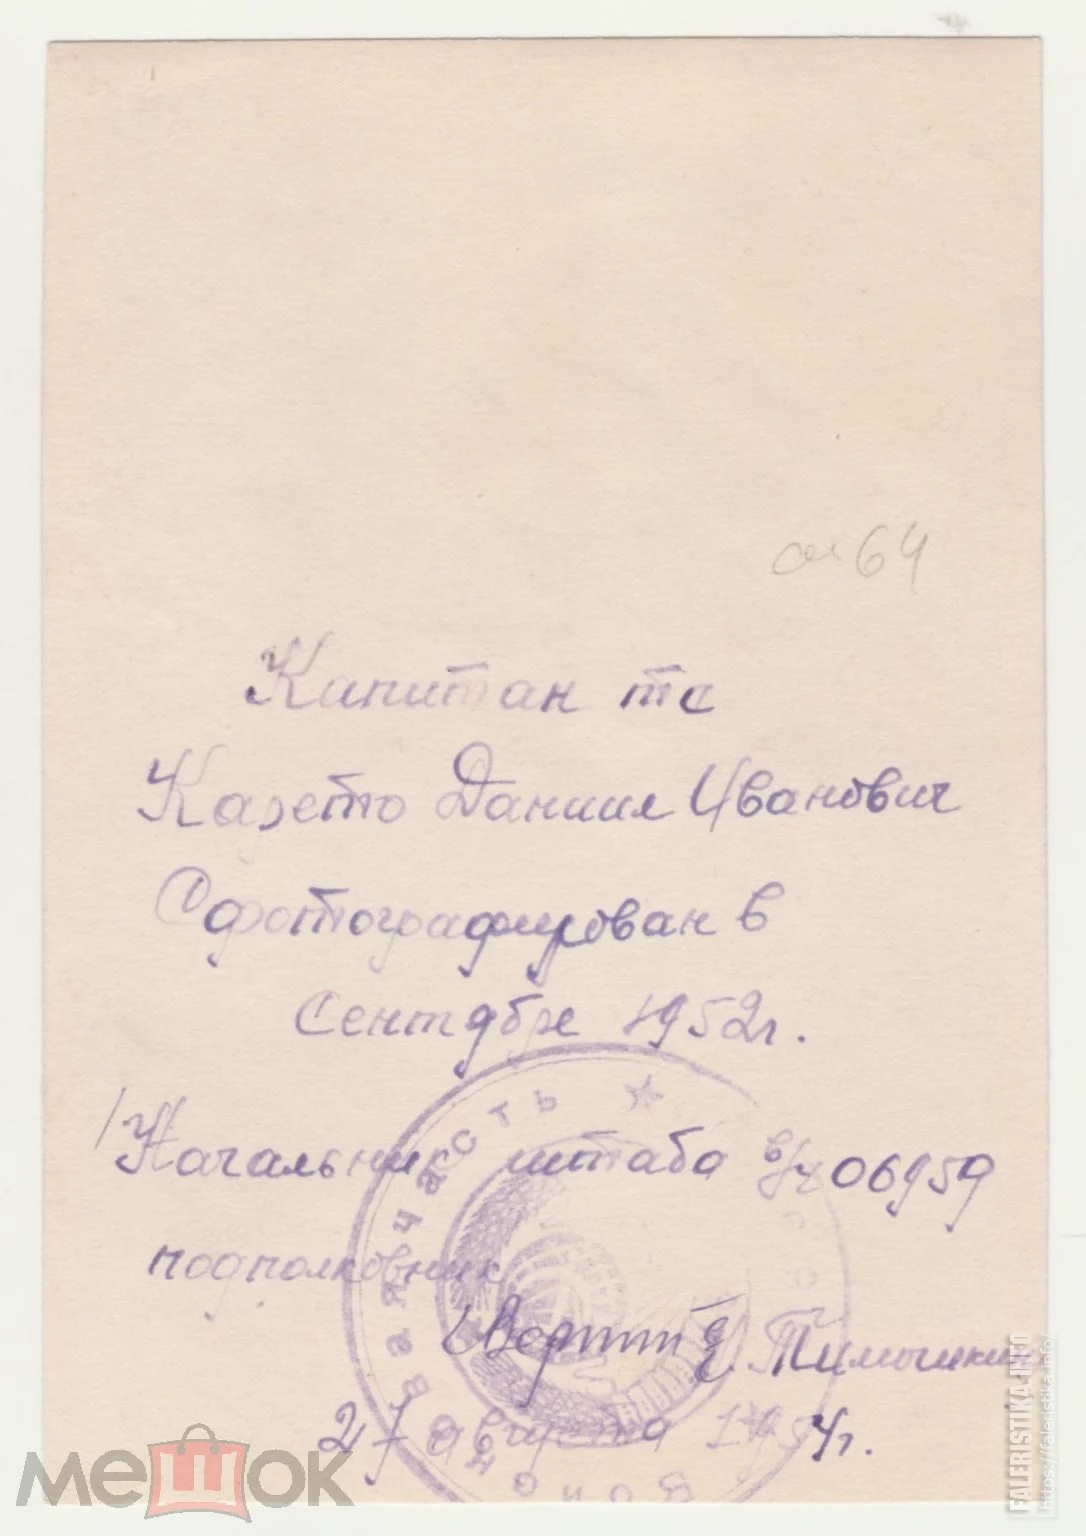 64
Капитан тс
Даниил Иванович
Сфотографирован в
Сентябре 1952г.
Начальник штаба в/ч 06959
подполковник
Тимошкин
27 августа 1954г.
Войсковая часть
МЕШОК
FALERISTIKA.INFO
https://faleristika.info